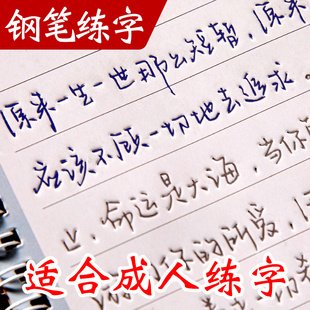 钢笔练字
原来一生一世那么短暂,原来
应该不顾一切地去追求。
,命运是大海,当你
你的所爱,
适合成人练字